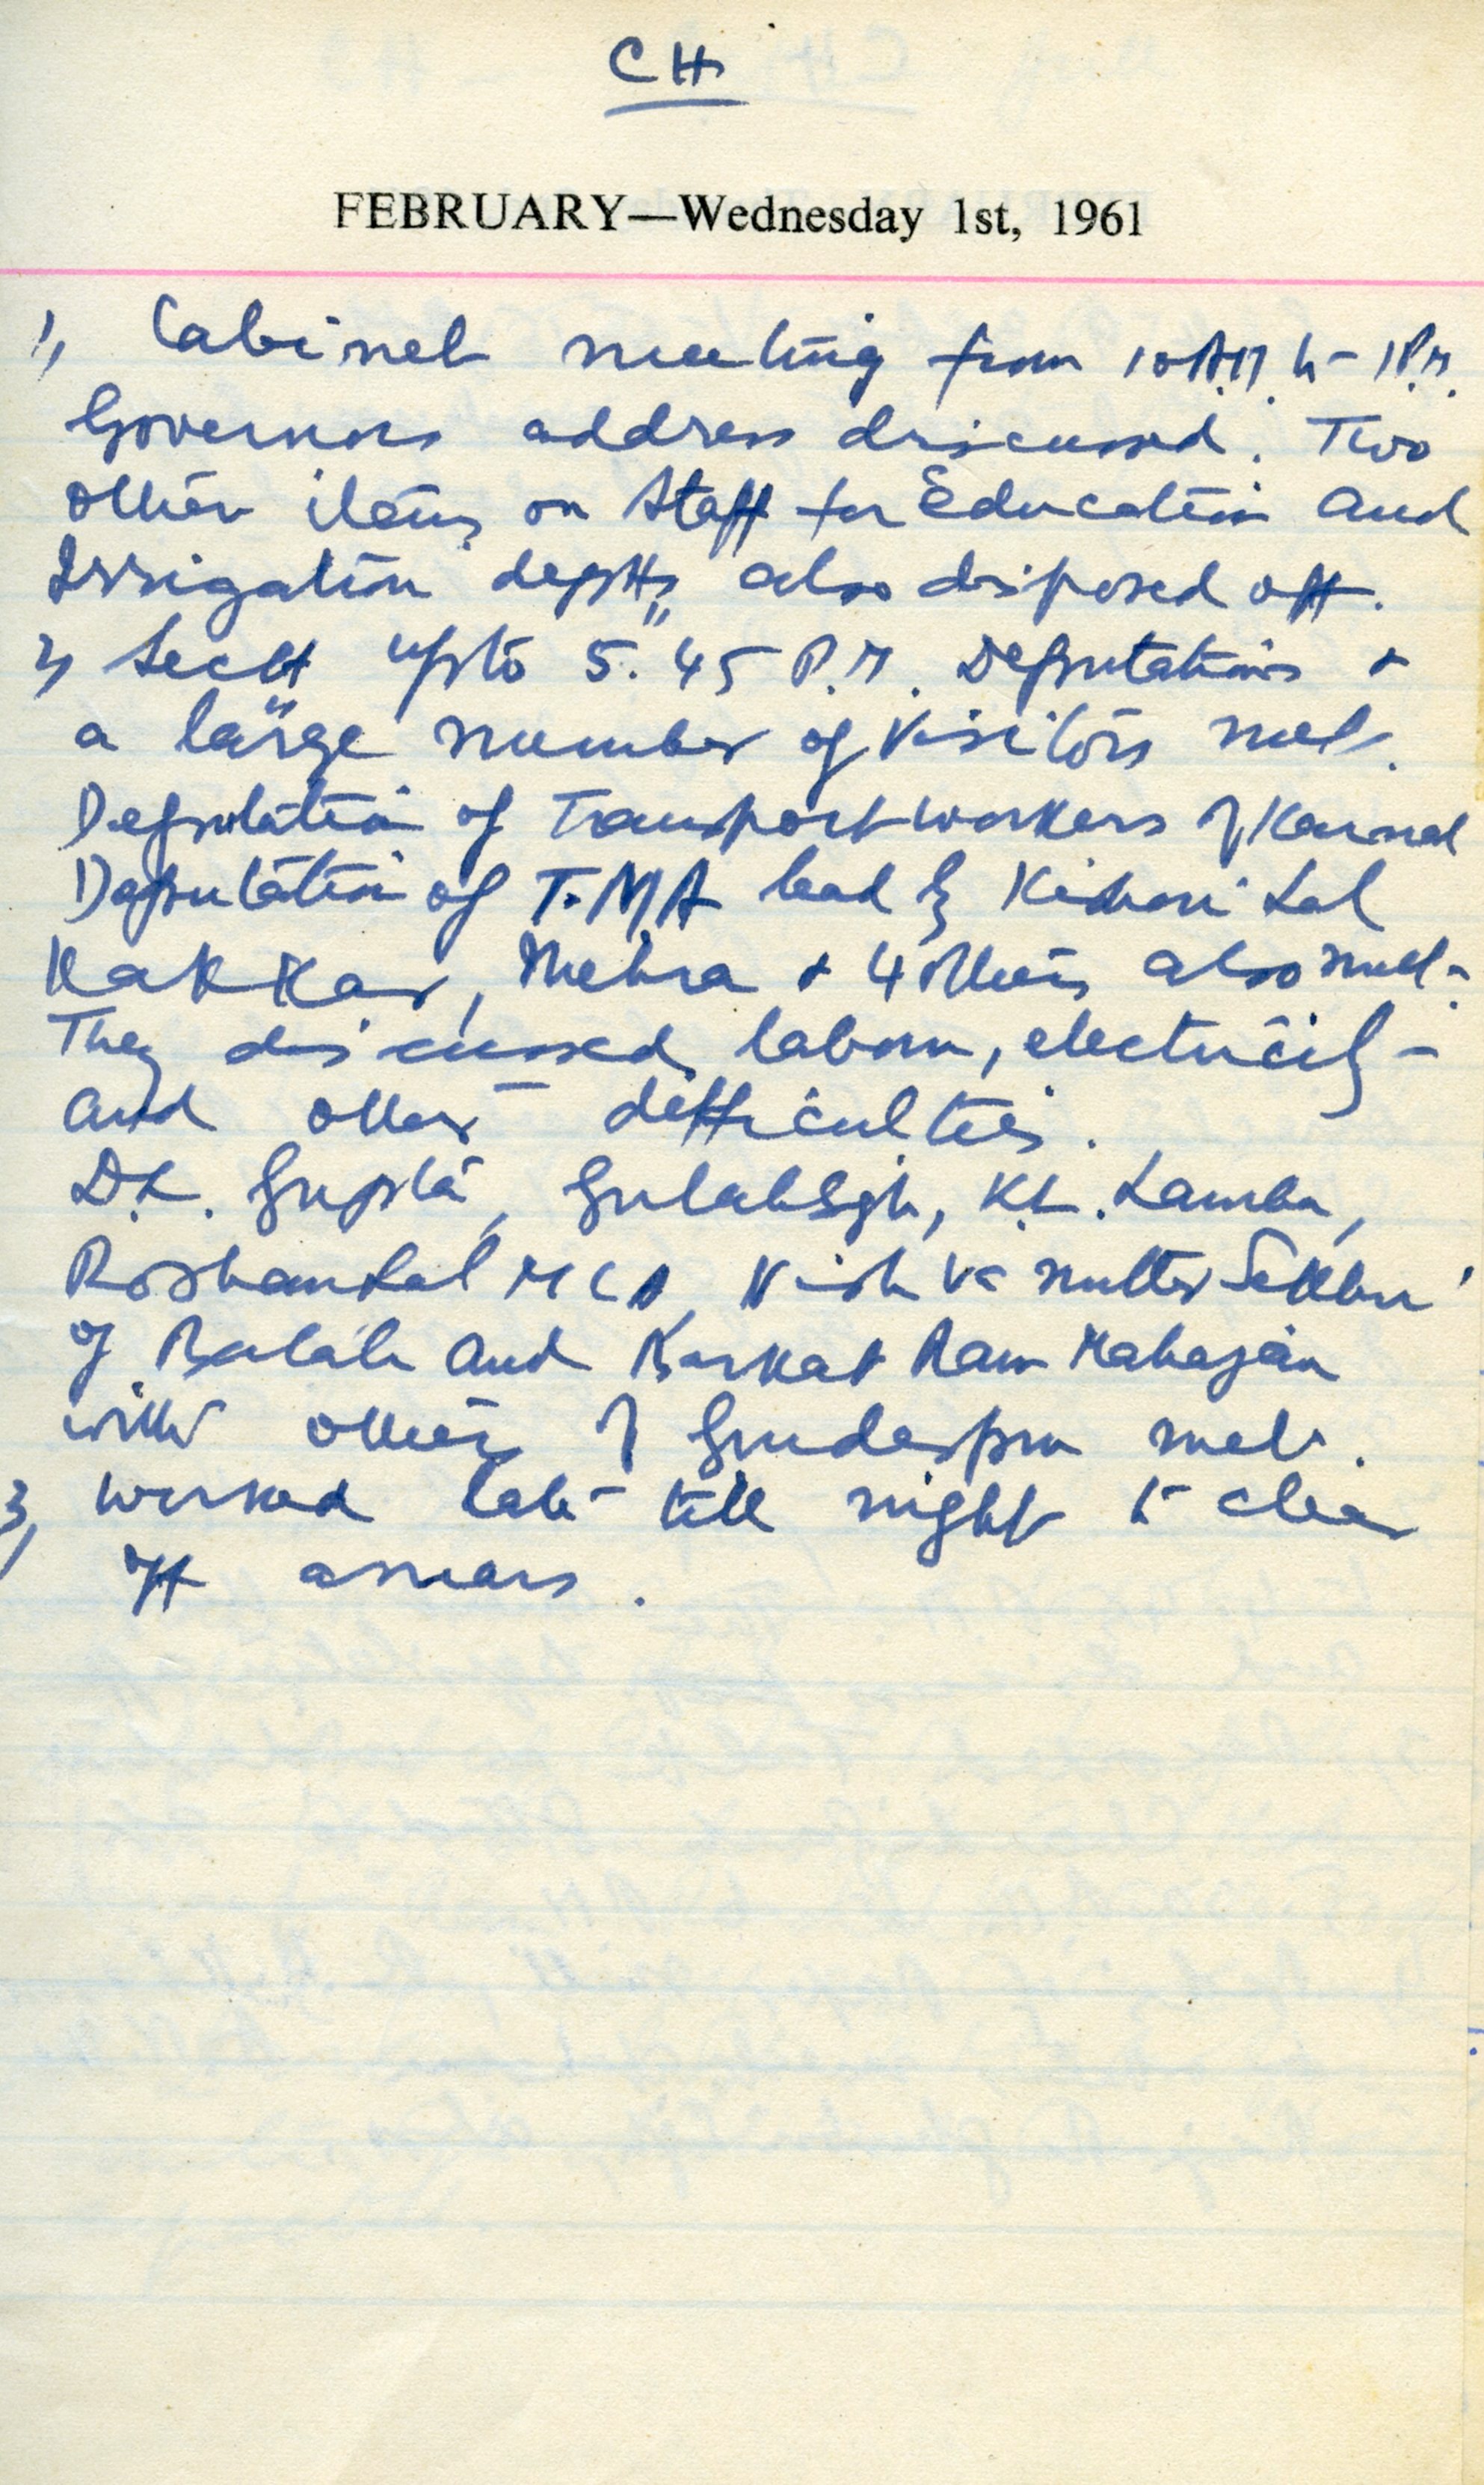 CH
FEBRUARY—Wednesday 1st, 1961
1, Cabinet meeting from 10 A.M. to 1 P.M.
Governors address discussed. Two
other items on Staff for Education and
Irrigation deptts also disposed off.
2, Sectt upto 5.45 P.M. Deputations +
a large number of visitors met.
Deputation of Transport workers of Karnal
Deputation of T.M.A lead by Kishori Lal
Kakkar, Mehra + 4 others also met.
They discussed labour, electricity
and other difficulties.
D.L. Gupta, Gulab Sgh, K.L. Lamba,
Roshan Lal MLA, Vishva Mutter Sekhri
of Batala and Barkat Ram Mahajan
with others of Gurdaspur met.
3, Worked late till night to clear
off arrears.